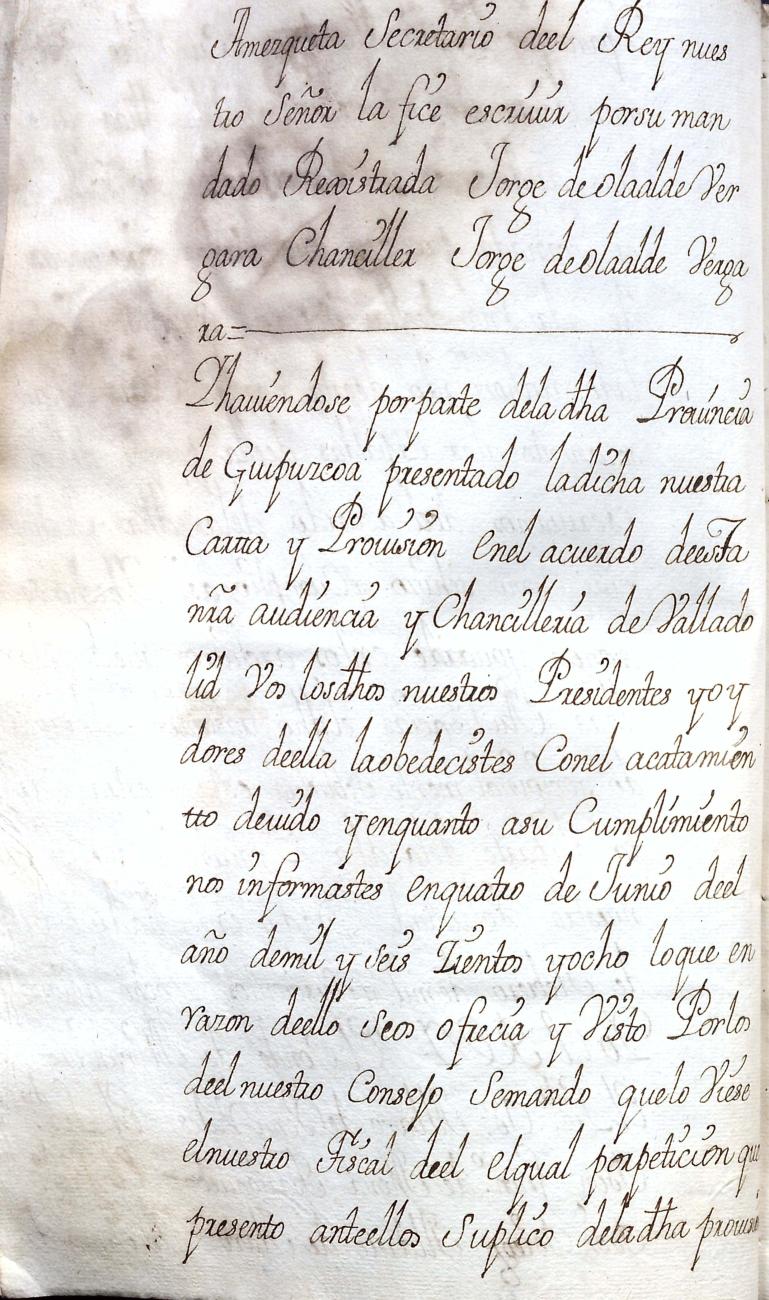 Amezqueta Secretario deel Rey nues
tro Señor la fice escriuir porsu man
dado Rexistrada Jorge de olaalde Ver
gara Chanciller Jorge deolaalde Verga
ra=
Yhauiendose porparte dela dha Prouincia
de Guipuzcoa presentado ladicha nuestra
Cartta y Prouision enel acuerdo deesta
nrã audiencia y Chancilleria de Vallado
lid Vos losdhos nuestros Presidentes yoy
dores deella laobedecistes Conel acatamien
tto deuido yenquanto asu Cumplimiento
nos informastes enquatro de Junio deel
año demil y seis Zientos yocho loque en
razon deello seos ofrecia y Visto Porlos
deelnuestro Consejo Semando quelo Viese
elnuestro Fiscal deel elqual porpeticion que
presento anteellos Suplico deladha prouisi